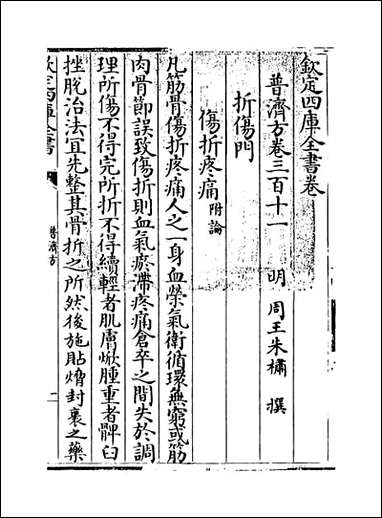 欽定四庫全書卷
普濟方卷三百十一　明　周王朱橚　撰
折傷門
傷折疼痛附論
凡筋骨傷折疼痛人之一身血榮氣衛循環無窮或筋
肉骨節誤致傷折則血氣瘀滯疼痛倉卒之間失於調
理所傷不得完所折不得續輕者肌膚焮腫重者髀臼
挫脫治法宜先整其骨折之所然後施貼熁封裹之藥
欽定四庫全書
普濟方
二